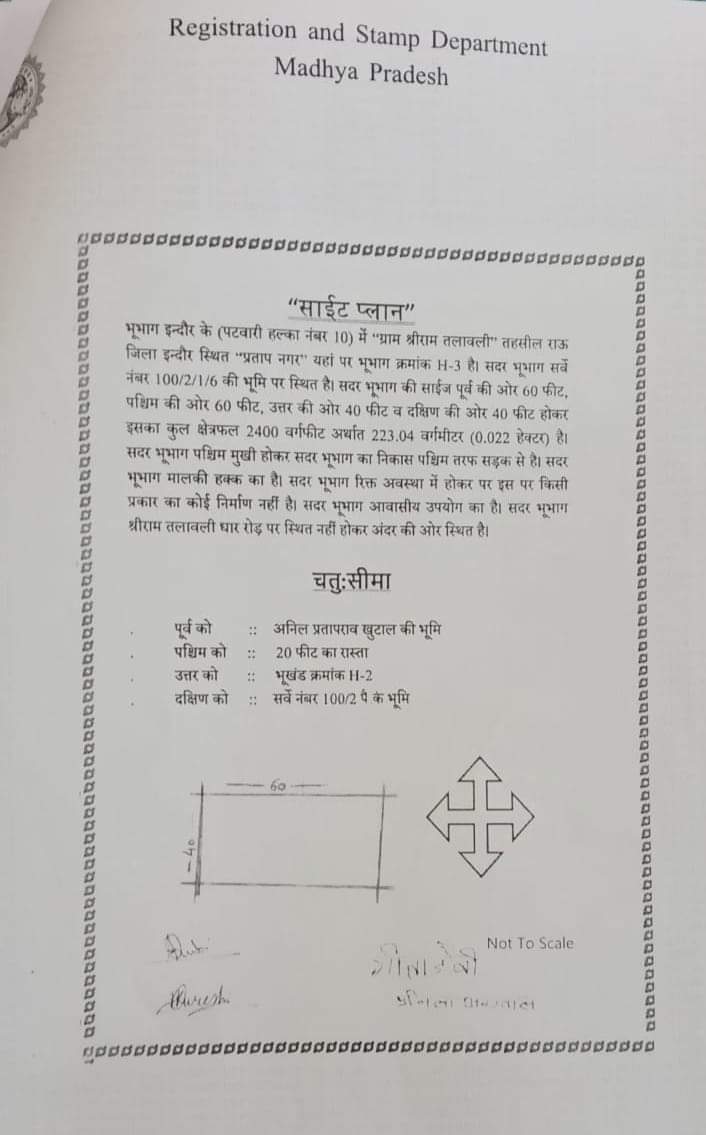 Registration and Stamp Department
Madhya Pradesh
“साईट प्लान”
भूभाग इन्दौर के (पटवारी हल्का नंबर 10) में “ग्राम श्रीराम तलावली” तहसील राऊ
जिला इन्दौर स्थित “प्रताप नगर” यहां पर भूभाग क्रमांक H-3 है। सदर भूभाग सर्वे
नंबर 100/2/1/6 की भूमि पर स्थित है। सदर भूभाग की साईज पूर्व की ओर 60 फीट,
पश्चिम की ओर 60 फीट, उत्तर की ओर 40 फीट व दक्षिण की ओर 40 फीट होकर
इसका कुल क्षेत्रफल 2400 वर्गफीट अर्थात 223.04 वर्गमीटर (0.022 हेक्टर) है।
सदर भूभाग पश्चिम मुखी होकर सदर भूभाग का निकास पश्चिम तरफ सड़क से है। सदर
भूभाग मालकी हक्क का है। सदर भूभाग रिक्त अवस्था में होकर पर इस पर किसी
प्रकार का कोई निर्माण नहीं है। सदर भूभाग आवासीय उपयोग का है। सदर भूभाग
श्रीराम तलावली धार रोड़ पर स्थित नहीं होकर अंदर की ओर स्थित है।
चतु:सीमा
पूर्व को :: अनिल प्रतापराव खुटाल की भूमि
पश्चिम को :: 20 फीट का रास्ता
उत्तर को :: भूखंड क्रमांक H-2
दक्षिण को :: सर्वे नंबर 100/2 पै कं भूमि
60
40
Not To Scale